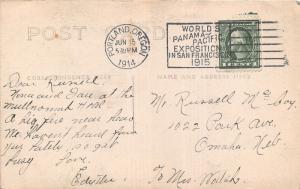 POST CARD
PORTLAND, OREGON
JUN 15
530PM
1914
WORLD'S
PANAMA-PACIFIC
EXPOSITION
IN SAN FRANCISCO
1915
CORRESPONDENCE HERE
NAME AND ADDRESS HERE
Dear Russell
Tena and Dave at the
multnomah Hotel
A big fire near here
We Havent heard from
you lately, so get
busy Love.
Mr. Russell McCoy,
1022 Park Ave
Omaha, Neb.
To Mrs.